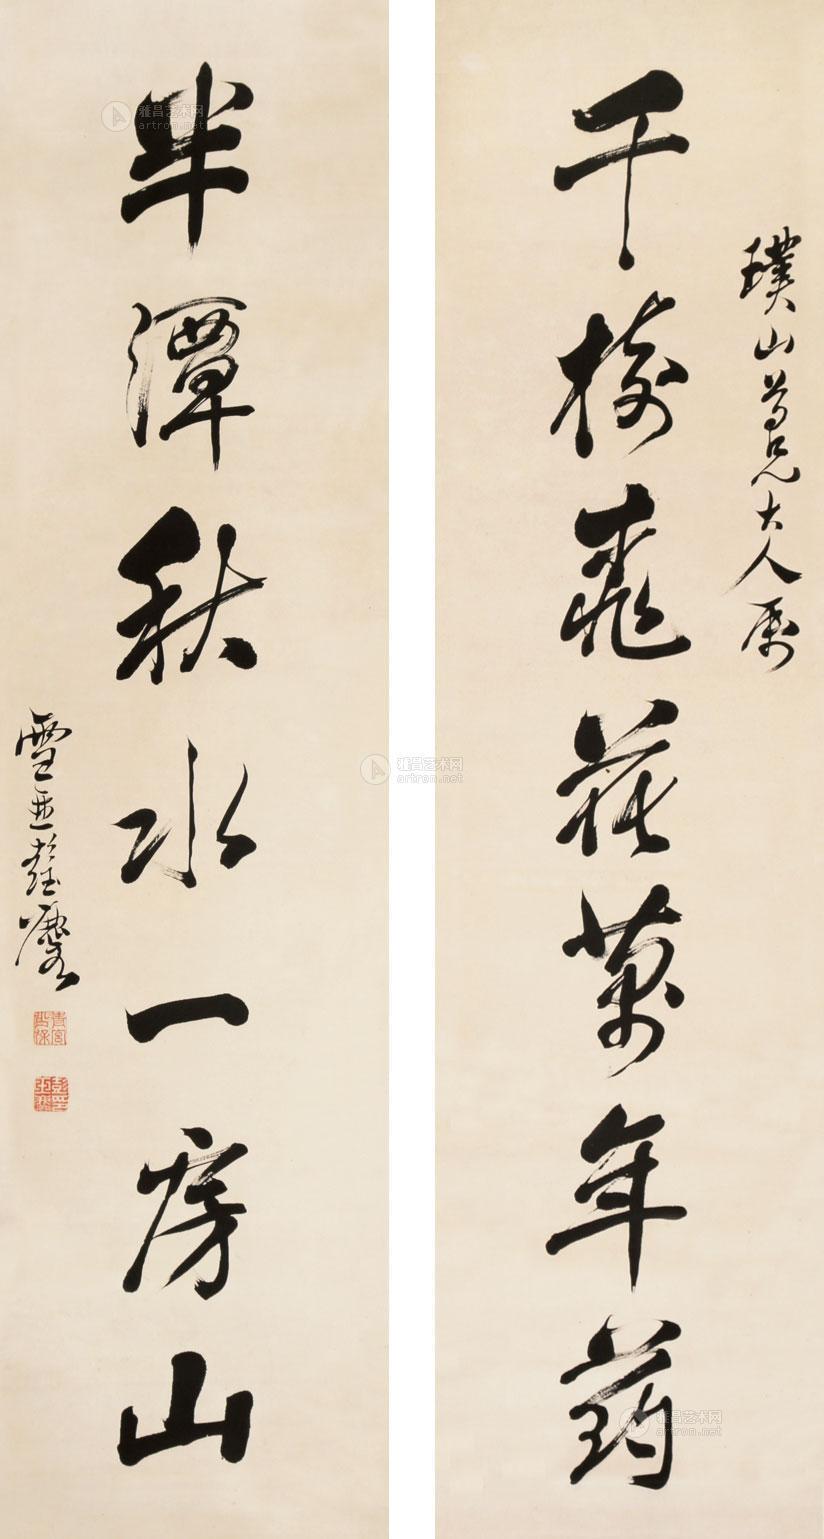 千樹桃花萬年葯
璞山尊兄大人屬
半潭秋水一房山
雪琴彭玉麐
雅昌艺术网
artron.net
雅昌艺术网
artron.net
雅昌艺术网
artron.net